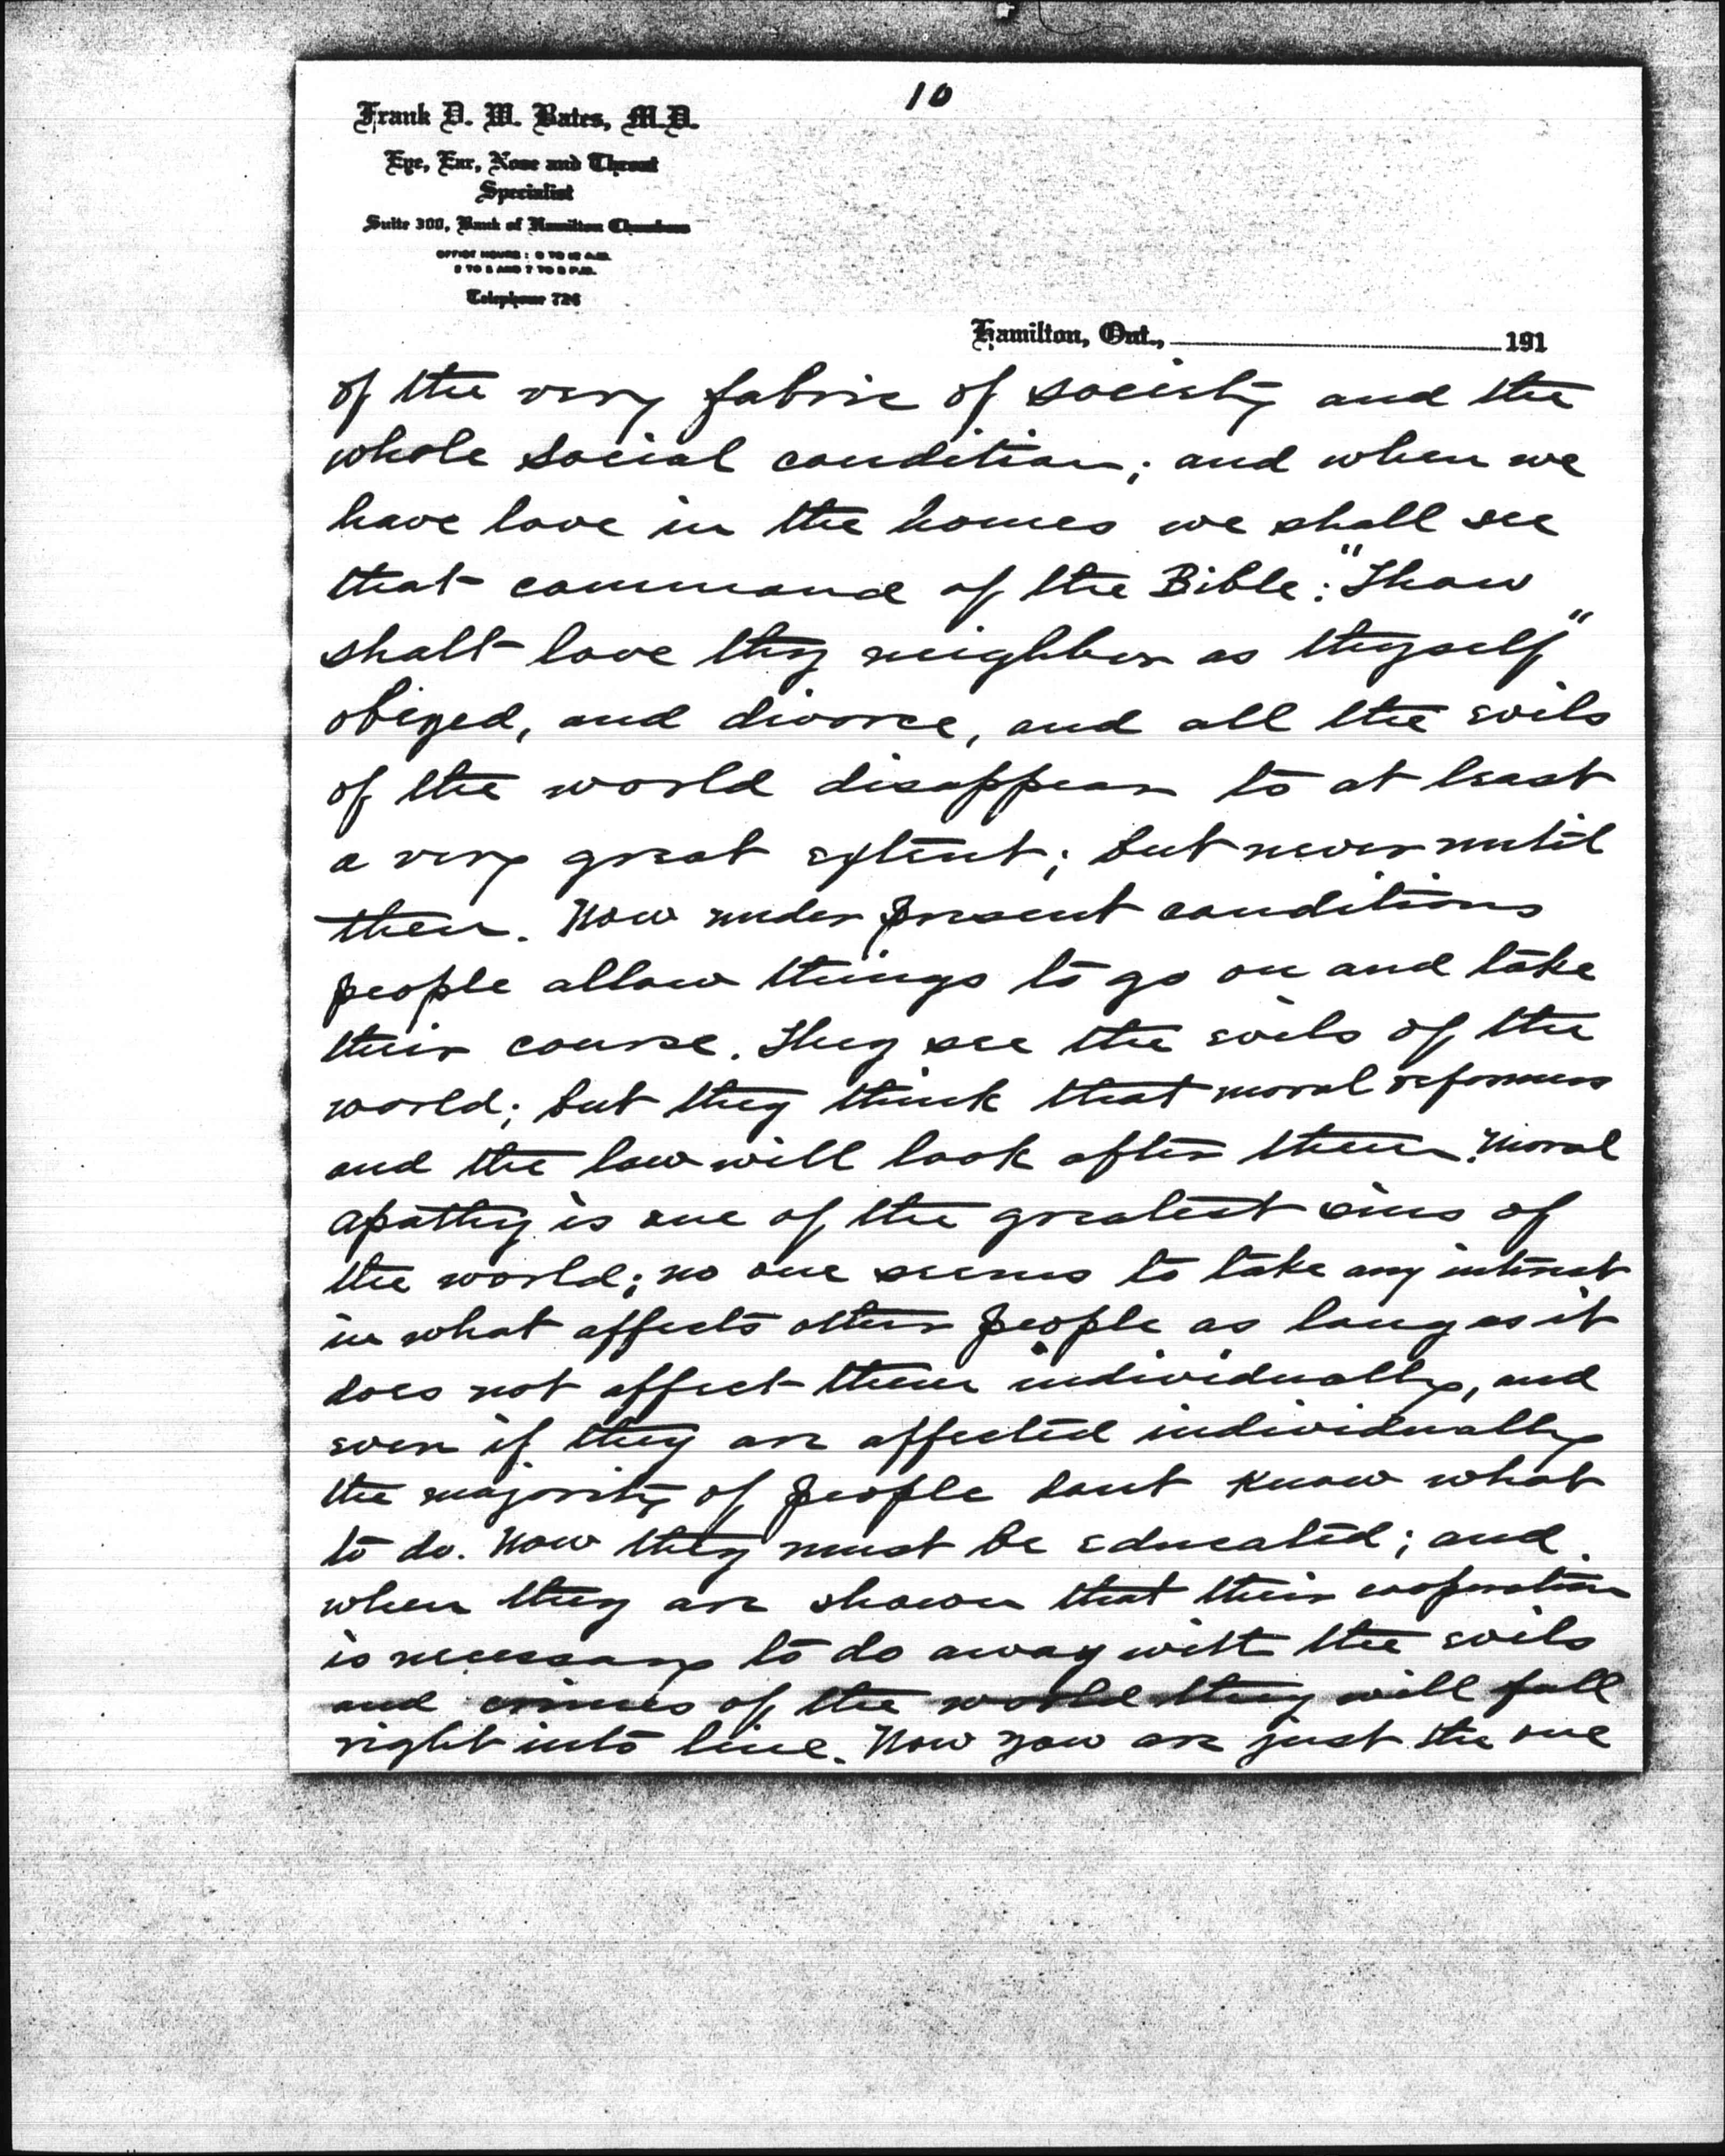 10
Frank D. W. Bates, M.D.
Eye, Ear, Nose and Throat
Specialist
Suite 300, Bank of Hamilton Chambers
OFFICE HOURS: 9 TO 12 A.M.
2 TO 5 AND 7 TO 8 P.M.
Telephone 726
Hamilton, Ont., 191
of the very fabric of society and the
whole social condition; and when we
have love in the homes we shall see
that command of the Bible: "Thow
shalt love thy neighbor as thyself"
obeyed, and divorce, and all the evils
of the world disappear to at least
a very great extent; but never until
then. Now under present conditions
people allow things to go on and take
their course. They see the evils of the
world; but they think that moral reformers
and the law will look after them. Moral
apathy is one of the greatest sins of
the world; no one seems to take any interest
in what affects other people as long as it
does not affect them individually, and
even if they are affected individually
the majority of people dont know what
to do. Now they must be educated; and
when they are shown that their cooperation
is necessary to do away with the evils
and crimes of the world they will fall
right into line. Now you are just the one